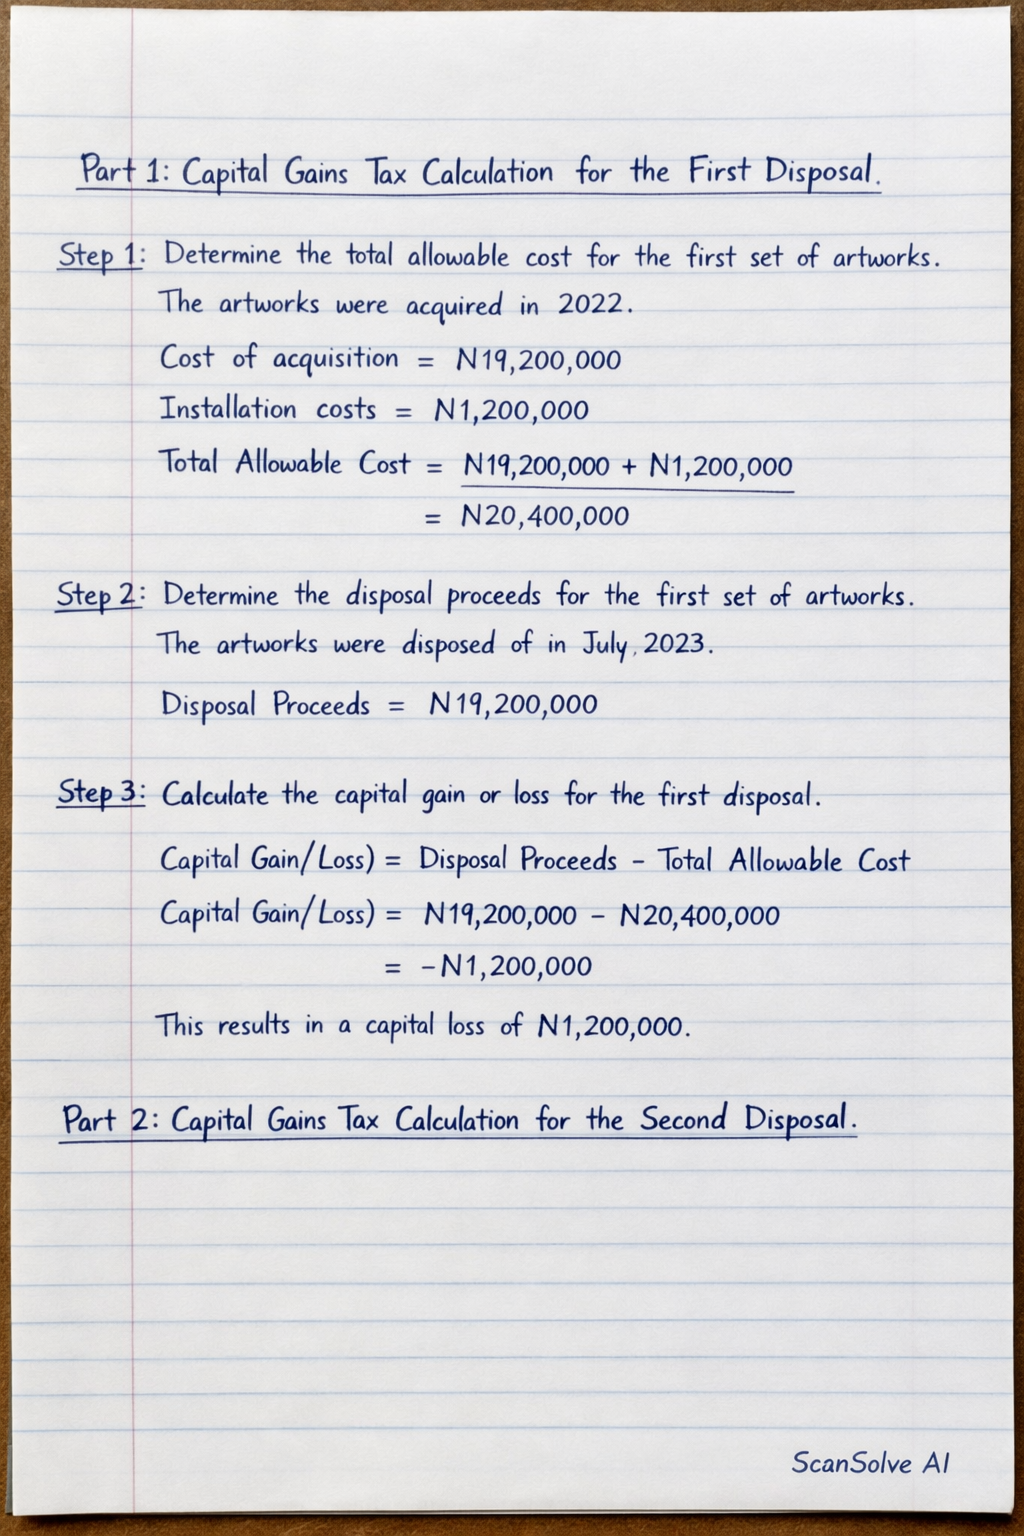 Part 1: Capital Gains Tax Calculation for the First Disposal.
Step 1: Determine the total allowable cost for the first set of artworks.
The artworks were acquired in 2022.
Cost of acquisition = N19,200,000
Installation costs = N1,200,000
Total Allowable Cost = N19,200,000 + N1,200,000
= N20,400,000
Step 2: Determine the disposal proceeds for the first set of artworks.
The artworks were disposed of in July, 2023.
Disposal Proceeds = N19,200,000
Step 3: Calculate the capital gain or loss for the first disposal.
Capital Gain/Loss) = Disposal Proceeds - Total Allowable Cost
Capital Gain/Loss) = N19,200,000 - N20,400,000
= -N1,200,000
This results in a capital loss of N1,200,000.
Part 2: Capital Gains Tax Calculation for the Second Disposal.
ScanSolve AI